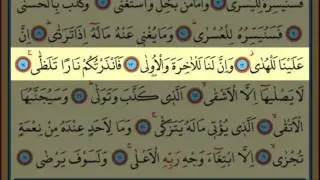 فَسَنُيَسِّرُهُ لِلْيُسْرَىٰ ۝٧ وَأَمَّا مَنْ بَخِلَ وَاسْتَغْنَىٰ ۝٨ وَكَذَّبَ بِالْحُسْنَىٰ ۝٩
فَسَنُيَسِّرُهُ لِلْعُسْرَىٰ ۝١٠ وَمَا يُغْنِي عَنْهُ مَالُهُ إِذَا تَرَدَّىٰ ۝١١ إِنَّ
عَلَيْنَا لَلْهُدَىٰ ۝١٢ وَإِنَّ لَنَا لَلْآخِرَةَ وَالْأُولَىٰ ۝١٣ فَأَنْذَرْتُكُمْ نَارًا تَلَظَّىٰ ۝١٤
لَا يَصْلَاهَا إِلَّا الْأَشْقَىٰ ۝١٥ الَّذِي كَذَّبَ وَتَوَلَّىٰ ۝١٦ وَسَيُجَنَّبُهَا
الْأَتْقَىٰ ۝١٧ الَّذِي يُؤْتِي مَالَهُ يَتَزَكَّىٰ ۝١٨ وَمَا لِأَحَدٍ عِنْدَهُ مِنْ نِعْمَةٍ
تُجْزَىٰ ۝١٩ إِلَّا ابْتِغَاءَ وَجْهِ رَبِّهِ الْأَعْلَىٰ ۝٢٠ وَلَسَوْفَ يَرْضَىٰ ۝٢١